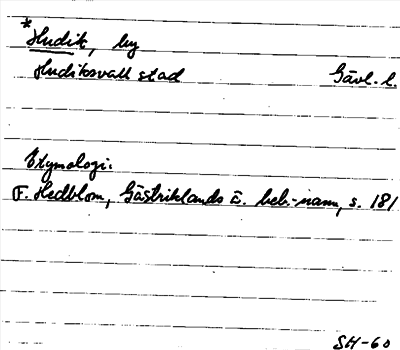 *Hudik, by
Hudiksvall stad Gävl. l.
Etymologi:
F. Hedblom, Gästriklands ä. beb.-namn, s. 181
SH-60